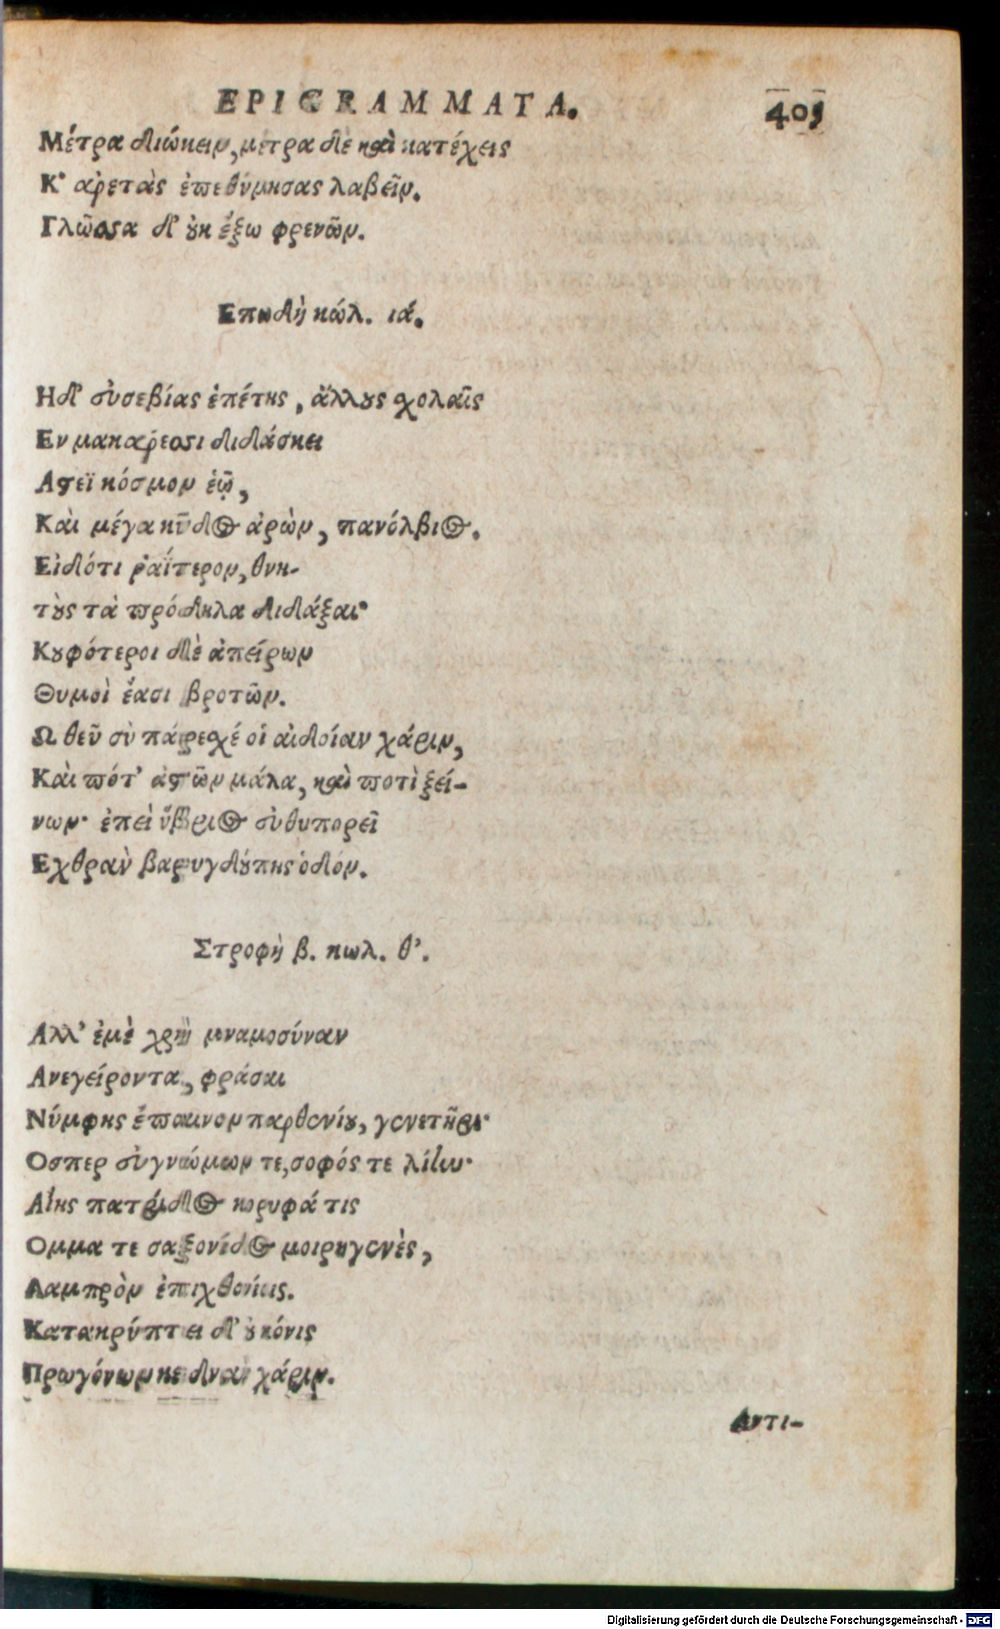 EPIGRAMMATA. 405
Μέτρα διώκειν, μέτρα δὲ καὶ κατέχεις
Κ' ἀρετὰς ἐπεθύμησας λαβεῖν.
Γλῶσσα δ' οὐκ ἔξω φρενῶν.
Επωδὴ κώλ. ιά.
Ηδ' εὐσεβίας ἐπέτης, ἄλλους χολαῖς
Εν μακαρεσσι διδάσκει
Αστεϊ κόσμον ἑῷ,
Καὶ μέγα κῦδος ἀρὼν, πανόλβιος.
Εἰδότι ῥαΐτερον, θνη-
τοὺς τὰ πρόδηλα διδάξαι·
Κουφότεροι δὲ ἀπείρων
Θυμοὶ ἔασι βροτῶν.
Ω θεῦ σὺ πάρεσχέ οἱ αἰδοίαν χάριν,
Καὶ πότ' ἀστῶν μάλα, καὶ ποτὶ ξεί-
νων· ἐπεὶ ὕβριος εὐθυπορεῖ
Εχθρὰν βαρυγδούπης ὁδόν.
Στροφὴ β. κωλ. θ'.
Αλλ' ἐμὲ χρὴ μναμοσύναν
Ανεγείροντα, φράσαι
Νύμφης ἔπαινον παρθενίου, γενετῆρι·
Οσπερ εὐγνώμων τε, σοφός τε λίην·
Αἵης πατρίδος κορυφά τις
Ομμα τε σαξονίδος μοιρηγενὲς,
Λαμπρὸν ἐπιχθονίοις.
Κατακρύπτει δ' οὐ κόνις
Πρωγόνων κεδναν χάριν.
Αντι-
Digitalisierung gefördert durch die Deutsche Forschungsgemeinschaft - DFG